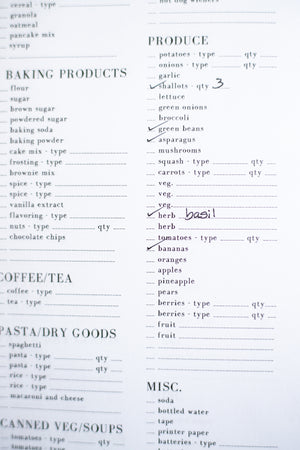 cereal - type
granola
oatmeal
pancake mix
syrup
BAKING PRODUCTS
flour
sugar
brown sugar
powdered sugar
baking soda
baking powder
cake mix - type
frosting - type
brownie mix
spice - type
spice - type
vanilla extract
flavoring - type
nuts - type qty
chocolate chips
COFFEE/TEA
coffee - type
tea - type
PASTA/DRY GOODS
spaghetti
pasta - type qty
pasta - type qty
rice - type
rice - type
macaroni and cheese
CANNED VEG/SOUPS
tomatoes - type qty
tomatoes - type qty
hot dog wieners
PRODUCE
potatoes - type qty
onions - type qty
garlic
shallots - qty 3
lettuce
green onions
broccoli
green beans
asparagus
mushrooms
squash - type qty
carrots - type qty
veg.
veg.
veg.
herb basil
herb
tomatoes - type qty
bananas
oranges
apples
pineapple
pears
berries - type qty
berries - type qty
fruit
fruit
MISC.
soda
bottled water
tape
printer paper
batteries - type